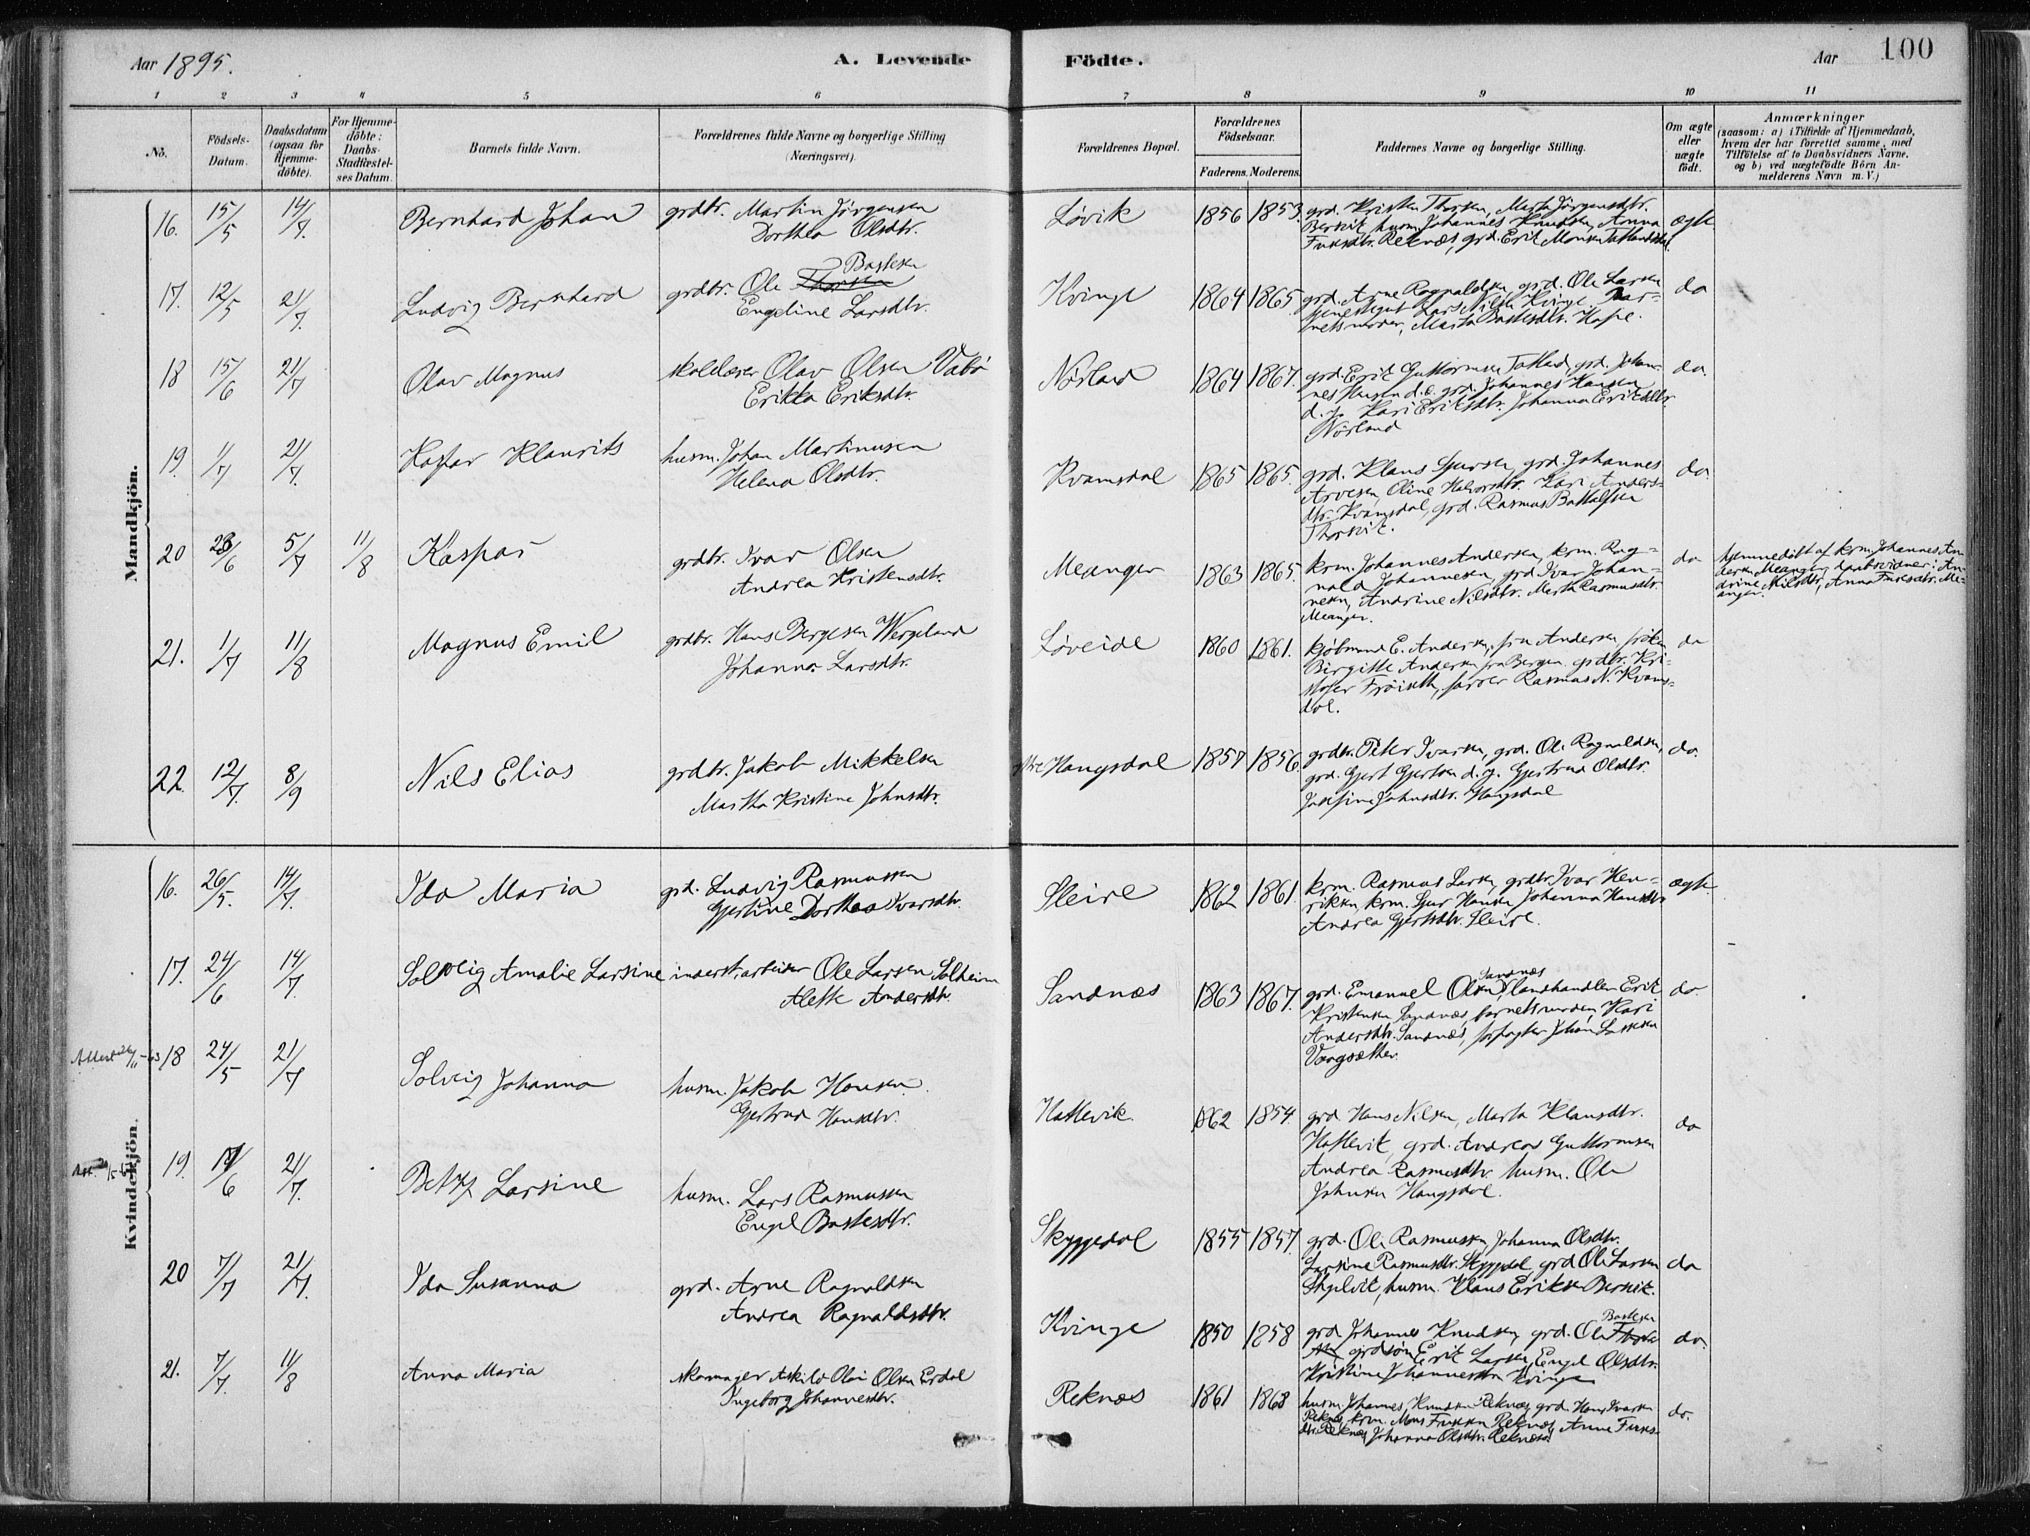 Aar 1895.
A. Levende
Födte.
Aar
100
1 2 3 4 5 6 7 8 9 10 11
No.
Födsels-
Datum.
Daabsdatum
(ogsaa for
Hjemme-
döbte).
For Hjemme-
döbte:
Daabs-
Stadfæstel-
ses Datum.
Barnets fulde Navn.
Forældrenes fulde Navne og borgerlige Stilling
(Næringsvei).
Forældrenes Bopæl.
Forældrenes
Födselsaar.
Faderens. Moderens.
Faddernes Navne og borgerlige Stilling.
Om ægte
eller
uægte
födt.
Anmærkninger
(saasom: a) i Tilfælde af Hjemmedaab,
hvem der har forrettet samme, med
Tilföielse af to Daabsvidners Navne,
og b) ved uægtefödte Börn An-
melderens Navn m. V.)
Mandkjön.
16. 15/5 14/7. Bernhard Johan grdbr. Martin Jörgensen
Dorthea Olsdtr.
Lövik 1856 1853. grd. Kristen Thorsen, Marta Jörgensdtr.
Berkvik, husm. Johannes Knudsen, Anna
Reknæs, grd. Erik Monsen
ægte
17. 12/5 21/7. Ludvig Bernhard grdbr. Ole Thorsen Bastesen
Engeline Larsdtr.
Kvinge 1864 1865. grd. Arne Ragnaldsen, grd. Ole Larsen
Lars Nilsen Kvinge, Bar-
nets moder, Marta Bastesdtr.
do
18 15/6 21/7 Olav Magnus skolelærer Olav Olsen Vabö
Erikka Eriksdtr.
Nörland 1864 1867. grd. Erik Guttormsen Totland, grd. Johan-
nes Hansen d.e. grd. Johannes Hansen
d. y. Kari Eriksdtr. Johanna Eriksdtr.
Nörland
do.
19. 1/7 21/7. Kaspar Klaurits husm. Johan Martinusen
Helena Olsdtr.
Kvamsdal 1865 1865. grd. Klaus Sjursen, grd. Johannes
Arvesen, Oline Halvorsdtr. Kari Anders-
dtr. Kvamsdal, grd. Rasmus
do.
20 23/6 5/7 11/8 Kaspar grdbr. Ivar Olsen
Andrea Kristensdtr.
Meanger 1863 1865. krm. Johannes Andersen, krm. Rag-
nald Johannesen, grd. Ivar Johan-
nesen, Andrine Nilsdtr. Marta Rasmusdtr.
Meanger.
do hjemmedöbt af krm. Johannes An-
dersen Meanger, daabsvidner: An-
drine Nilsdtr, Anna Me-
anger.
21. 1/7 11/8 Magnus Emil grdbr. Hans Bergesen Wergeland
Johanna Larsdtr.
Löveide 1860 1861. kjöbmand E. Andersen, fru Andersen, fröken
Birgitte Andersen fra Bergen, grdbr. Kri-
stofer Fröiseth, Rasmus N. Kvams-
dal.
do
22. 12/7. 8/9 Nils Elias grdbr. Jakob Mikkelsen
Martha Kristine Johnsdtr.
Haugsdal 1857 1856. grdbr. Peter Ivarsen, grd. Ole Ragnaldsen,
grd. Gjert Gjertsen d.y. Gjertrud Olsdtr.
Josefine Johnsdtr. Haugsdal
do.
Kvindekjön.
16. 26/5. 14/7. Ida Maria grd. Ludvig Rasmussen
Gjertine Dorthea Ivarsdtr.
Sleire 1862 1861 krm. Rasmus Larsen, grdbr. Ivar Hen-
riksen, krm. Sjur Hansen, Johanna Hansdtr.
Andrea Gjertsdtr. Sleire.
ægte
17. 24/6 14/7. Solveig Amalie Larsine inderst, arbeider Ole Larsen Solheim
Alette Andersdtr.
Sandnæs 1863 1867. grd. Emanuel Olsen Sandnæs, landhandler Erik
Kristensen Sandnæs, barnets moder, Kari
Andersdtr. Sandnæs, forpagter Johan Larsen
Vaagsæther.
do.
18 24/5 21/7 Solveig Johanna husm. Jakob Hansen
Gjertrud Hansdtr.
Hattevik 1862 1854. grd. Hans Nilsen, Marta Klausdtr.
Hattevik, grd. Andreas Guttormsen
Andrea Rasmusdtr. husm. Ole
Johnsen Haugsdal.
do
19. 19/6 21/7. Betsy Larsine husm. Lars Rasmussen
Engel Bastesdtr.
Skyggedal 1855 1857. grd. Ole Rasmussen, Johanna Olsdtr.
Larsine Rasmusdtr. Skyggedal, grd Ole Larsen
husm. Klaus Eriksen Berkvik.
do
20 7/7 21/7. Ida Susanna grd. Arne Ragnaldsen
Andrea Ragnaldsdtr.
Kvinge 1850 1858 grd. Johannes Knudsen, grd. Ole Bastesen
grdsön Erik Larsen, Engel Olsdtr.
Kristine Johannesdtr. Kvinge
do.
21. 7/7. 11/8 Anna Maria skomager Askild Olai Olsen Erdal
Ingeborg Johannesdtr.
Reknæs 1861 1868 husm. Johannes Knudsen Reknæs, grd. Hans Ivarsen
Reknæs, krm. Mons Reknæs, Anna
Reknæs, Johanna Olsdtr. Reknæs.
do.